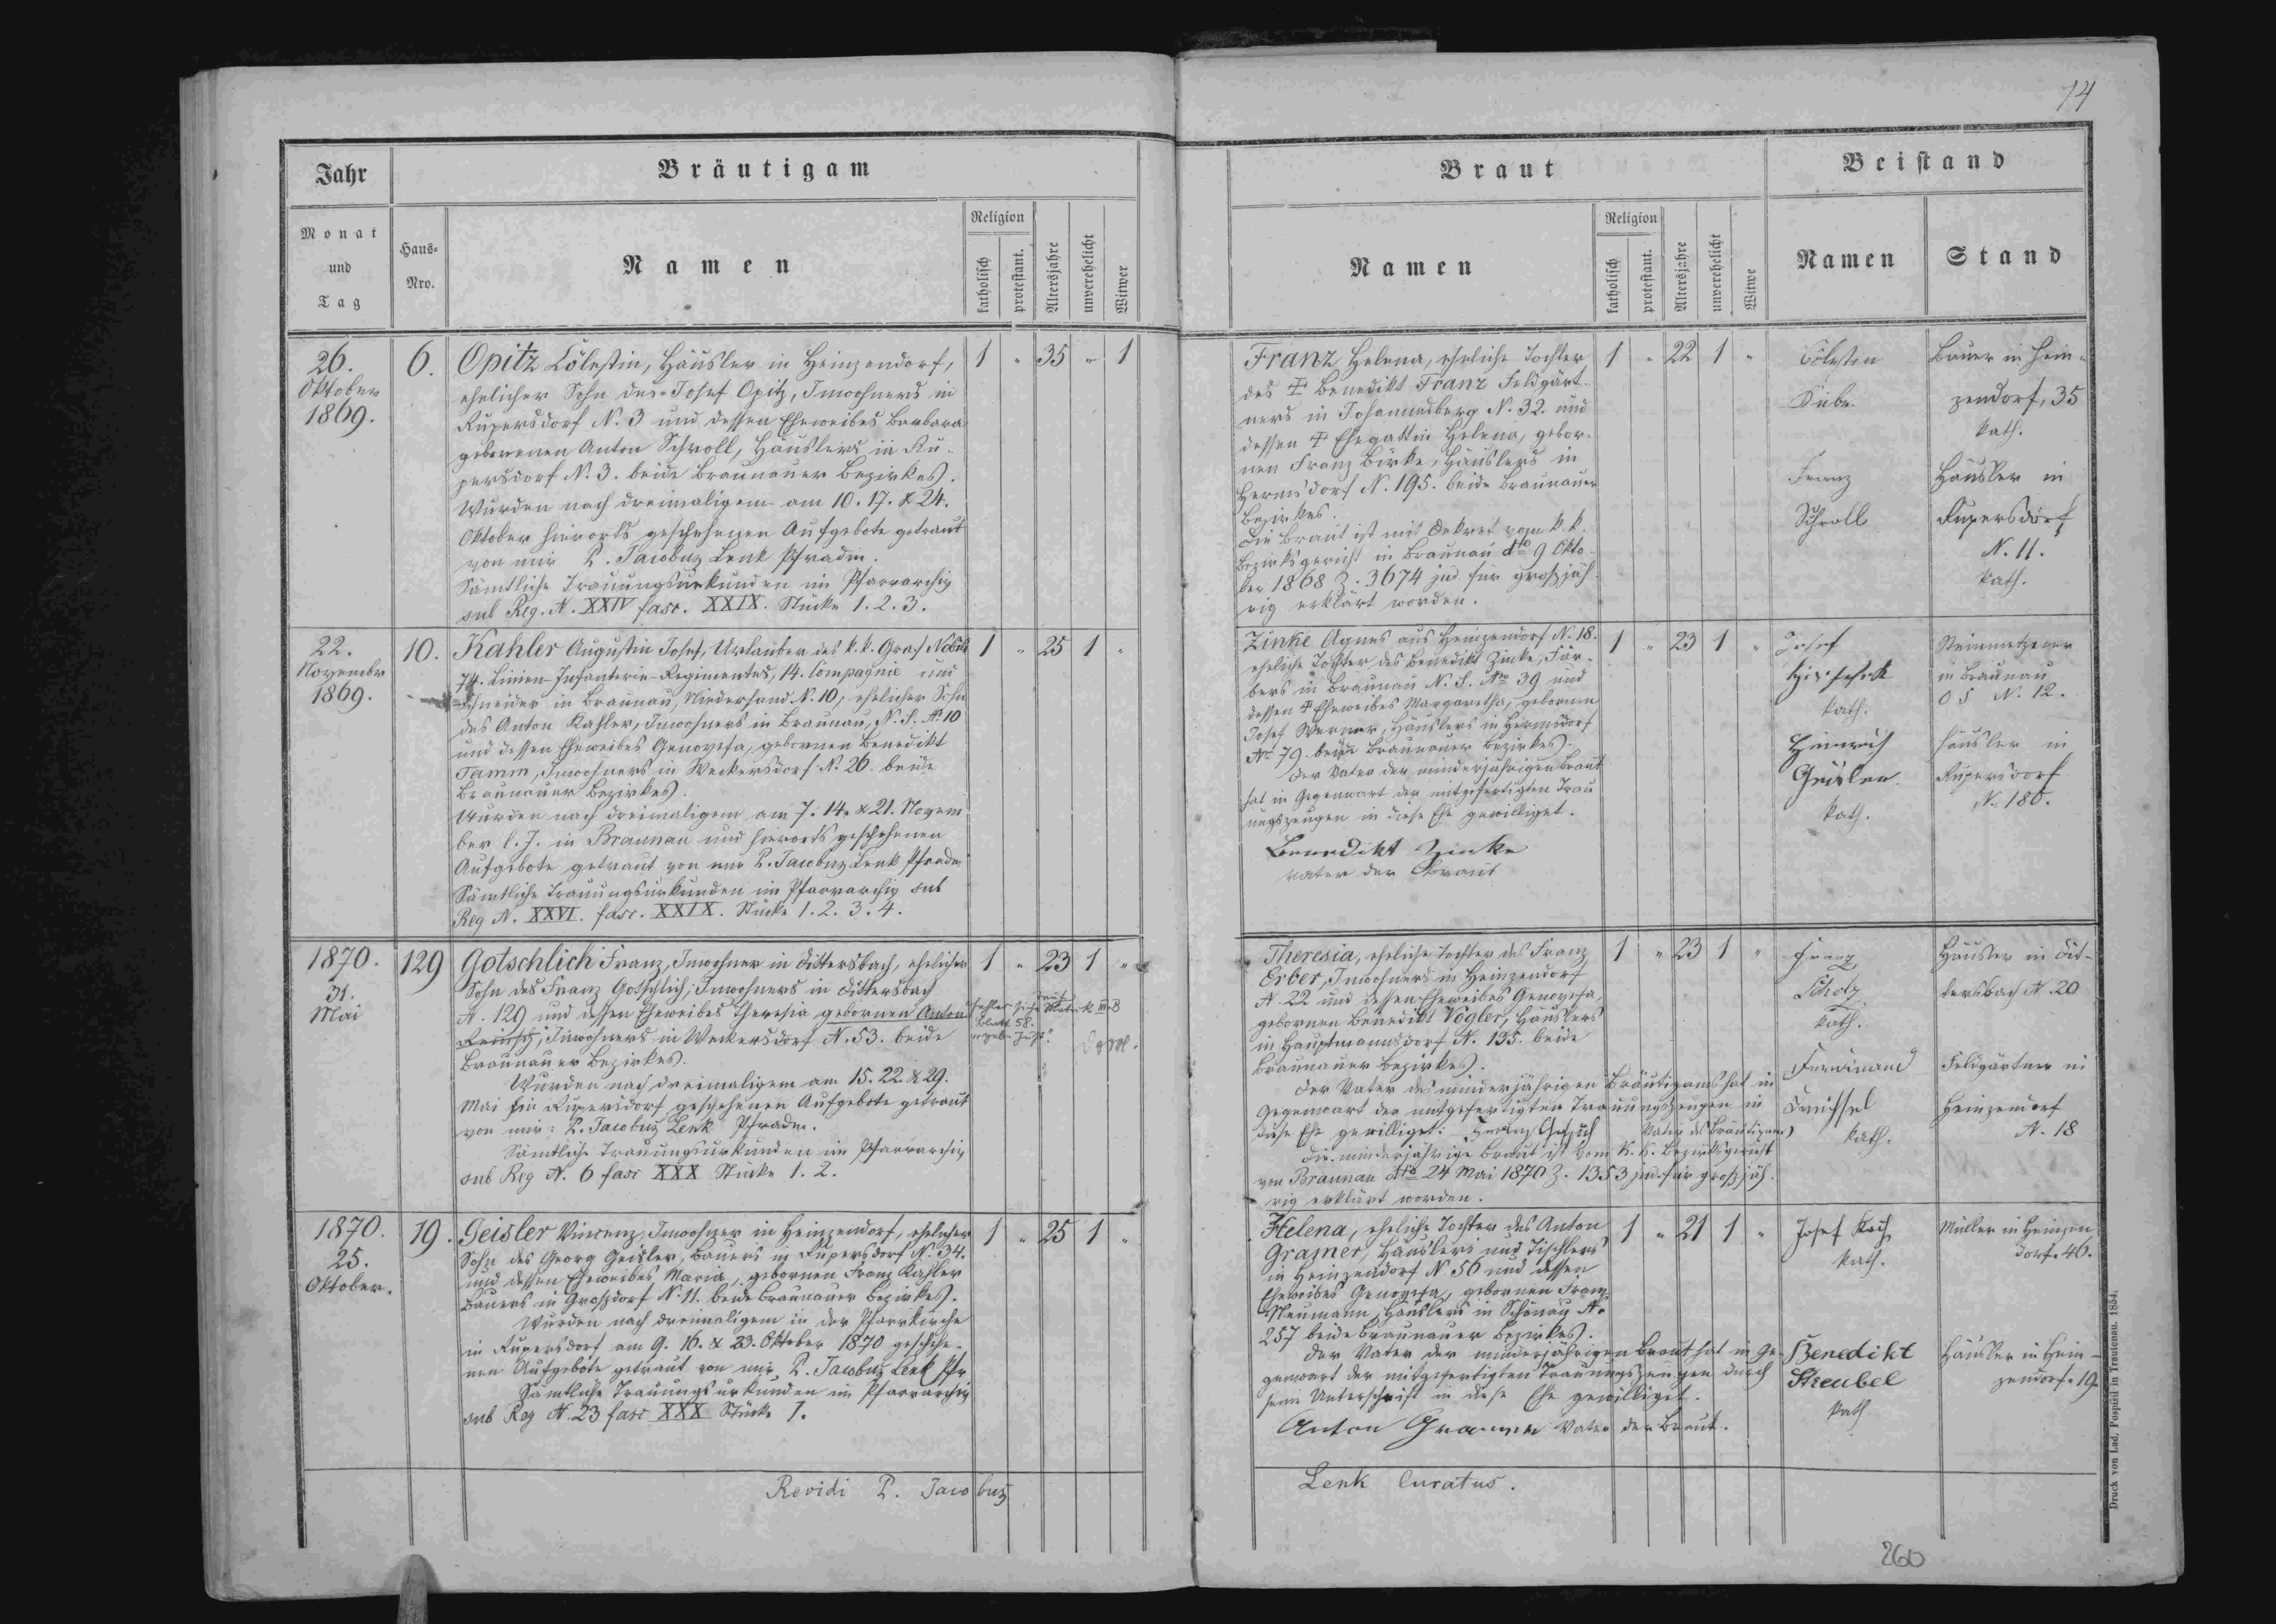 14
Jahr
Bräutigam
Monat
und
Tag
Haus-
Nro.
Namen
Religion
katholisch
protestant.
Altersjahre
unverehelicht
Witwer
26.
Oktober
1869.
6.
Opitz Cölestin, Häusler in Heinzendorf,
ehelicher Sohn des Josef Opitz, Inwohners in
Rupersdorf N. 3 und dessen Eheweibes Barbara
gebornen Anton Schroll, Häuslers in Ru-
persdorf N. 3. beide Braunauer Bezirkes.
Wurden nach dreimaligem am 10. 17. & 24.
Oktober hierorts geschehenen Aufgebote getraut
von mir P. Jacobus Lenk Pfradm.
Sämtliche Trauungsurkunden im Pfarrarchiv
sub Reg. N. XXIV fasc. XXIX. Stücke 1. 2. 3.
1 " 35 " 1
22.
November
1869.
10.
Kahler Augustin Josef, Urlauber des k. k. Graf Nobili
74. Linien-Infanterie-Regimentes, 14. Compagnie und
Schneider in Braunau, Niedersand N. 10, ehelicher Sohn
des Anton Kahler, Inwohners in Braunau, N. S. N. 10
und dessen Eheweibes Genovefa, gebornen Benedikt
Tamm, Inwohners in Weckersdorf N. 26. beide
Braunauer Bezirkes.
Wurden nach dreimaligem am 7. 14. & 21. Novem
ber l. J. in Braunau und hierorts geschehenen
Aufgebote getraut von mir P. Jacobus Lenk Pfradm
Sämtliche Trauungsurkunden im Pfarrarchiv sub
Reg N. XXVI. fasc. XXIX. Stücke 1. 2. 3. 4.
1 " 25 1 "
1870.
31.
Mai
129
Gotschlich Franz, Inwohner in Dittersbach, ehelicher
Sohn des Franz Gotschlich, Inwohners in Dittersbach
N. 129 und dessen Eheweibes Theresia gebornen Anton
Inwohners in Weckersdorf N. 53. beide
Braunauer Bezirkes.
Wurden nach dreimaligem am 15. 22. & 29.
Mai hin Rupersdorf geschehenen Aufgebote getraut
von mir: P. Jacobus Lenk Pfradm.
Sämtliche Trauungsurkunden im Pfarrarchiv
sub Reg N. 6 fasc XXX Stücke 1. 2.
1 " 23 1 "
Matrik III B
Blatt 58.
1870.
25.
Oktober.
19.
Geisler Vincenz, Inwohner in Heinzendorf, ehelicher
Sohn des Georg Geisler, Bauers in Rupersdorf N. 34.
und dessen Eheweibes Maria, gebornen Franz Kahler
Bauers in Großdorf N. 11. beide Braunauer Bezirkes.
Wurden nach dreimaligem in der Pfarrkirche
in Rupersdorf am 9. 16. & 23. Oktober 1870 geschehe-
nen Aufgebote getraut von mir P. Jacobus Lenk Pfr
Sämtliche Trauungsurkunden im Pfarrarchiv
sub Reg N. 23 fasc XXX Stücke 1.
1 " 25 1 "
Revidi P. Jacobus
Braut
Beistand
Namen
Religion
katholisch
protestant.
Altersjahre
unverehelicht
Witwe
Namen
Stand
Franz Helena, eheliche Tochter
des Benedikt Franz Feldgärt-
ners in Johannesberg N. 32. und
dessen Ehegattin Helena, gebor-
nen Franz Birke, Häuslers in
Hermsdorf N. 195. beide Braunauer
Bezirkes.
Die Braut ist mit Dekret vom k. k.
Bezirksgericht in Braunau dto 9 Okto-
ber 1868 Z. 3674 jud für großjäh-
rig erklärt worden.
1 " 22 1 "
Cölestin
Franz
Schroll
Bauer in Hein-
zendorf, 35
kath.
Häusler in
Rupersdorf
N. 11.
kath.
Zinke Agnes aus Heinzendorf N. 18.
eheliche Tochter des Benedikt Zinke, Fär-
bers in Braunau N. S. No 39 und
dessen Eheweibes Margaretha, gebornen
Josef Werner, Häuslers in Hermsdorf
No 79. beide Braunauer Bezirkes.
Der Vater der minderjährigen Braut
hat in Gegenwart der mitgefertigten Trau
ungszeugen in diese Ehe gewilliget.
Benedikt Zinke
Vater der Braut
1 " 23 1 "
Josef
kath.
Heinrich
Geisler
kath.
Steinmetzer
in Braunau
O S N. 12.
Häusler in
Rupersdorf
N. 180.
Theresia, eheliche Tochter des Franz
Erber, Inwohners in Heinzendorf
N. 22 und dessen Eheweibes Genovefa,
gebornen Benedikt Vogler, Häuslers
in Hauptmannsdorf N. 135. beide
Braunauer Bezirkes.
Der Vater des minderjährigen Bräutigams hat in
Gegenwart der mitgefertigten Trauungszeugen in
diese Ehe gewilliget: Franz Vater des Bräutigams
Die minderjährige Braut ist vom K. K. Bezirksgericht
von Braunau dto 24 Mai 1870 Z. 1353 jud. für großjäh-
rig erklärt worden.
1 " 23 1 "
Franz
Scholz
kath.
Ferdinand
kath.
Häusler in Dit-
tersbach N. 20
Feldgärtner in
Heinzendorf
N. 18
Helena, eheliche Tochter des Anton
Gramer, Häuslers und Tischlers
in Heinzendorf N 56 und dessen
Eheweibes Genovefa, gebornen Franz
Neumann, Häuslers in Schönau N.
257 beide Braunauer Bezirkes.
Der Vater der minderjährigen Braut hat in Ge-
genwart der mitgefertigten Trauungszeugen durch
seine Unterschrift in diese Ehe gewilliget.
Anton Vater der Braut.
1 " 21 1 "
Josef Koch
kath.
Benedikt
Streubel
kath
Müller in Heinzen
dorf. 46.
Häusler in Hein-
zendorf. 19.
Lenk Curatus.
260
Druck von Lad. Pospišil in Trautenau. 1854.